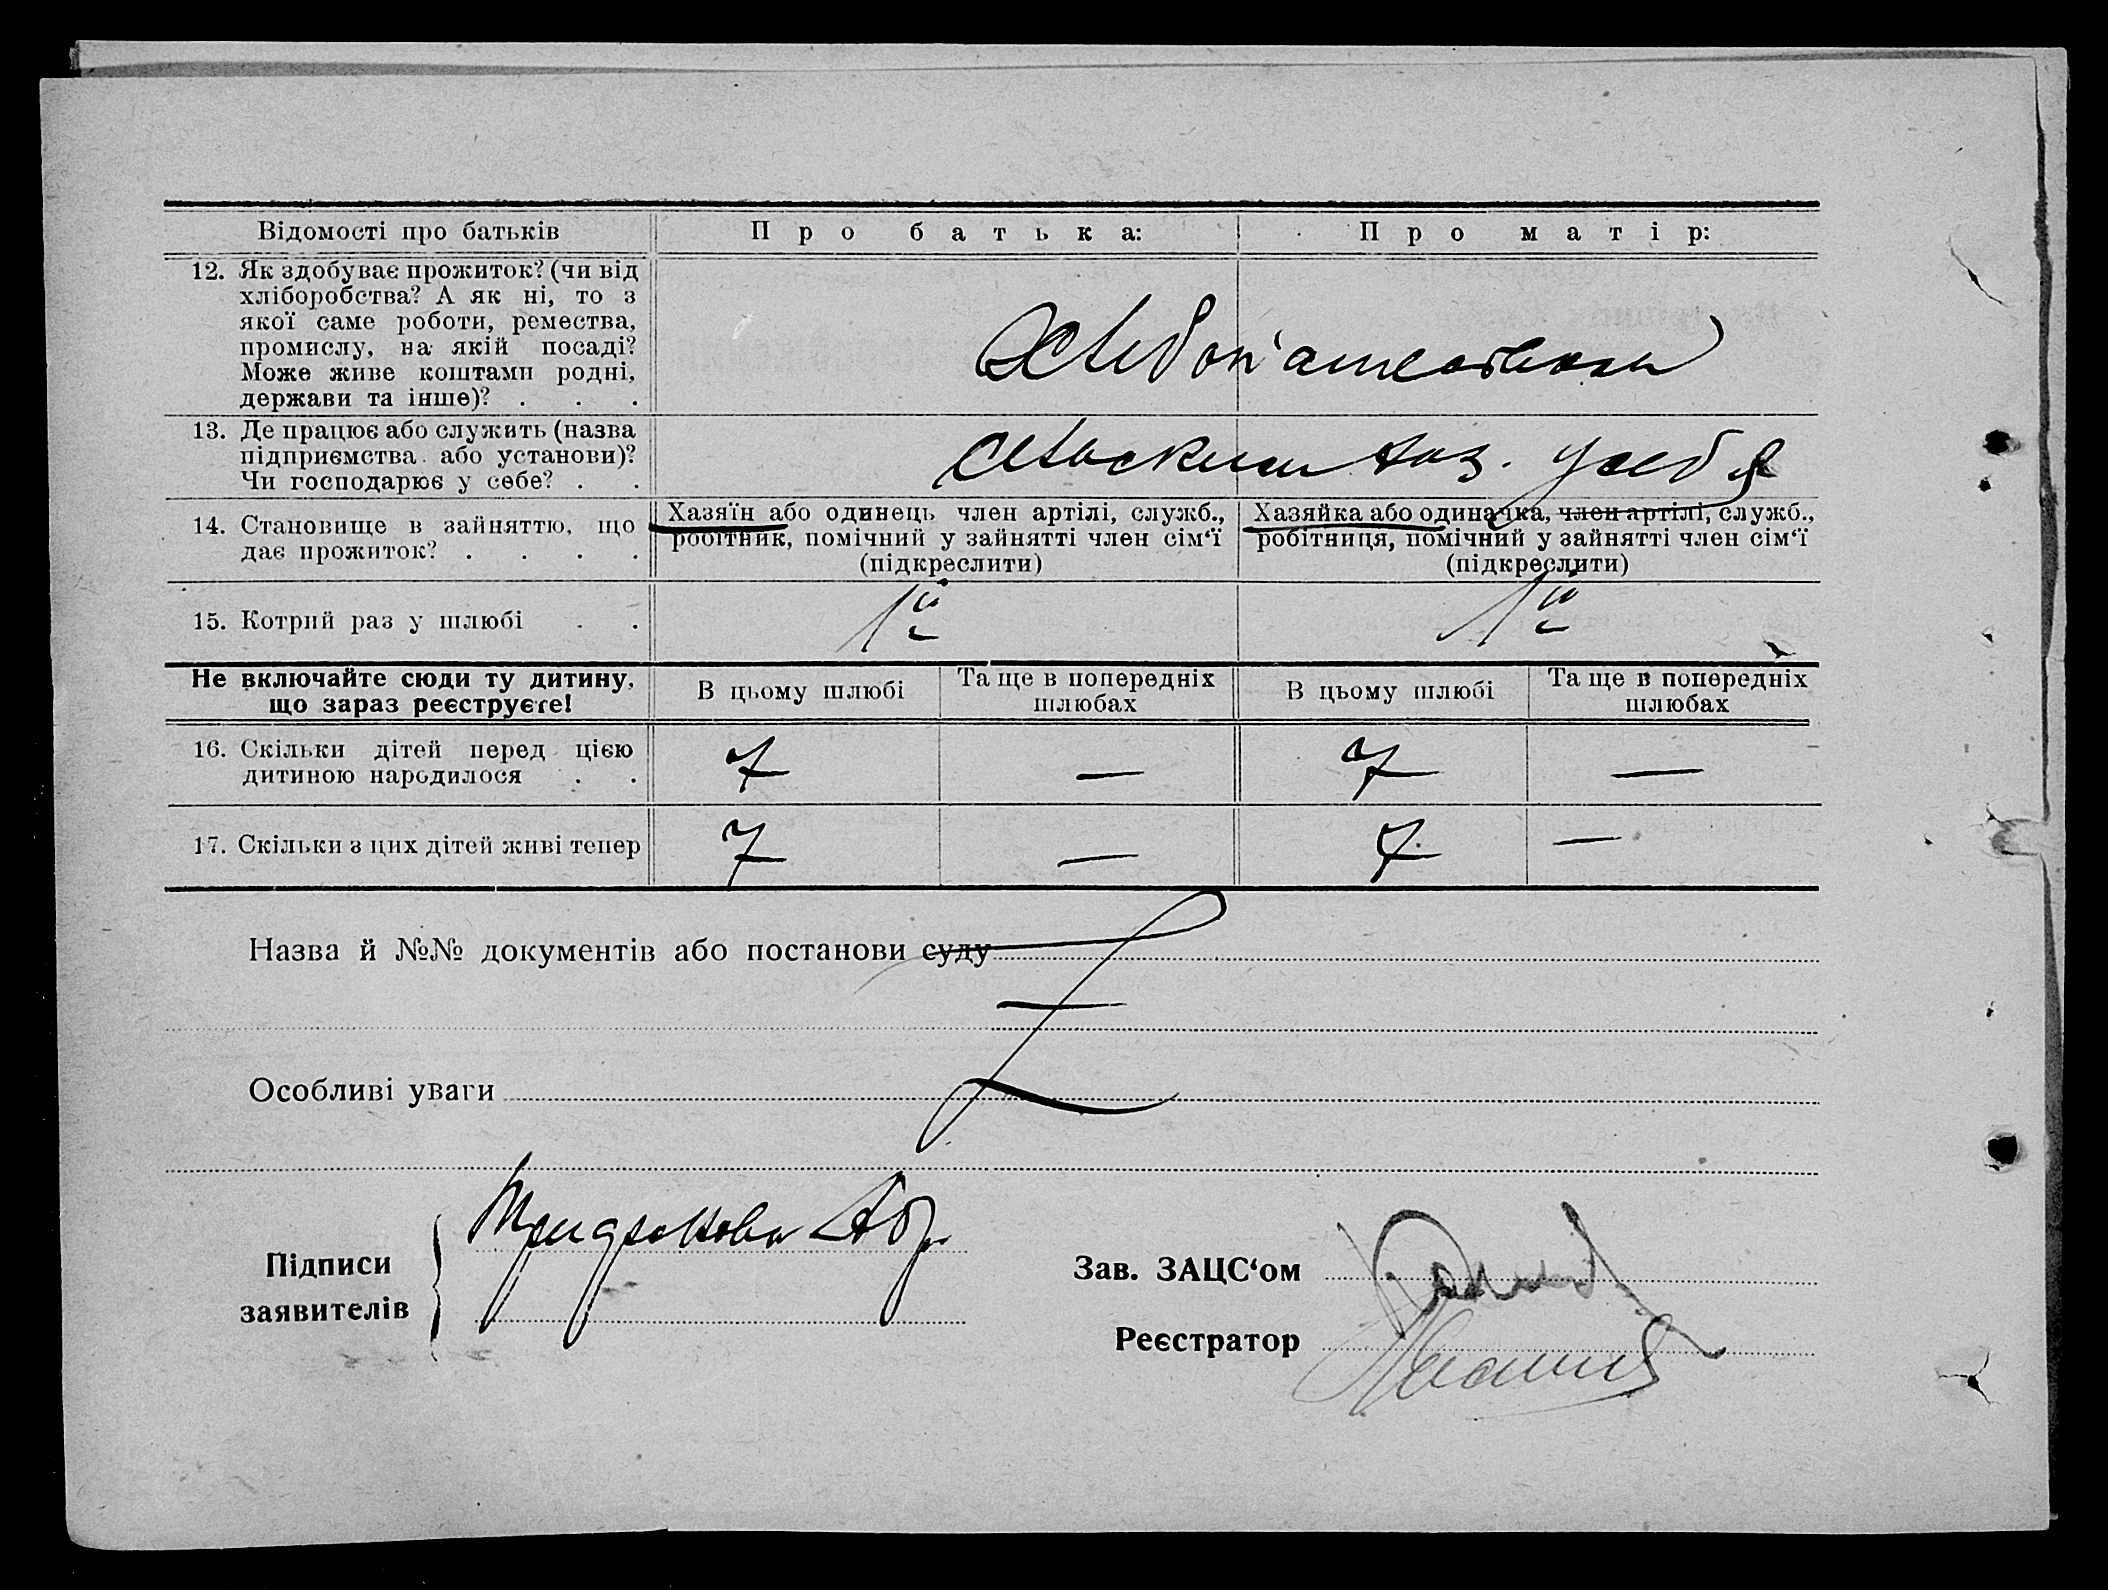 Відомості про батьків Про батька: Про матір:
12. Як здобуває прожиток? (чи від
хліборобства? А як ні, то з
якої саме роботи, ремества,
промислу, на якій посаді?
Може живе коштами родні,
держави та інше)? . . .
13. Де працює або служить (назва
підприємства або установи)?
Чи господарює у себе? . .
14. Становище в зайняттю, що
дає прожиток? . . . .
Хазяїн або одинець член артілі, служб.,
робітник, помічний у зайнятті член сім‘ї
(підкреслити)
Хазяйка або одиначка, член артілі, служб.,
робітниця, помічний у зайнятті член сім‘ї
(підкреслити)
15. Котрий раз у шлюбі . . 1й 1й
Не включайте сюди ту дитину,
що зараз реєструєте!
В цьому шлюбі
Та ще в попередніх
шлюбах
В цьому шлюбі
Та ще в попередніх
шлюбах
16. Скільки дітей перед цією
дитиною народилося . .
7 — 7 —
17. Скільки з цих дітей живі тепер 7 — 7 —
Назва й №№ документів або постанови суду
Особливі уваги
Підписи
заявителів
Зав. ЗАЦС‘ом
Реєстратор